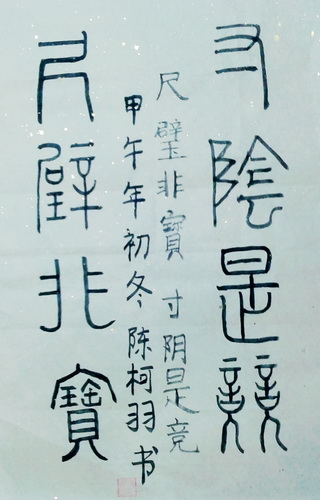 寸陰是競
尺璧非寶 寸阴是竞
甲午年初冬陈柯羽书
尺璧非寶